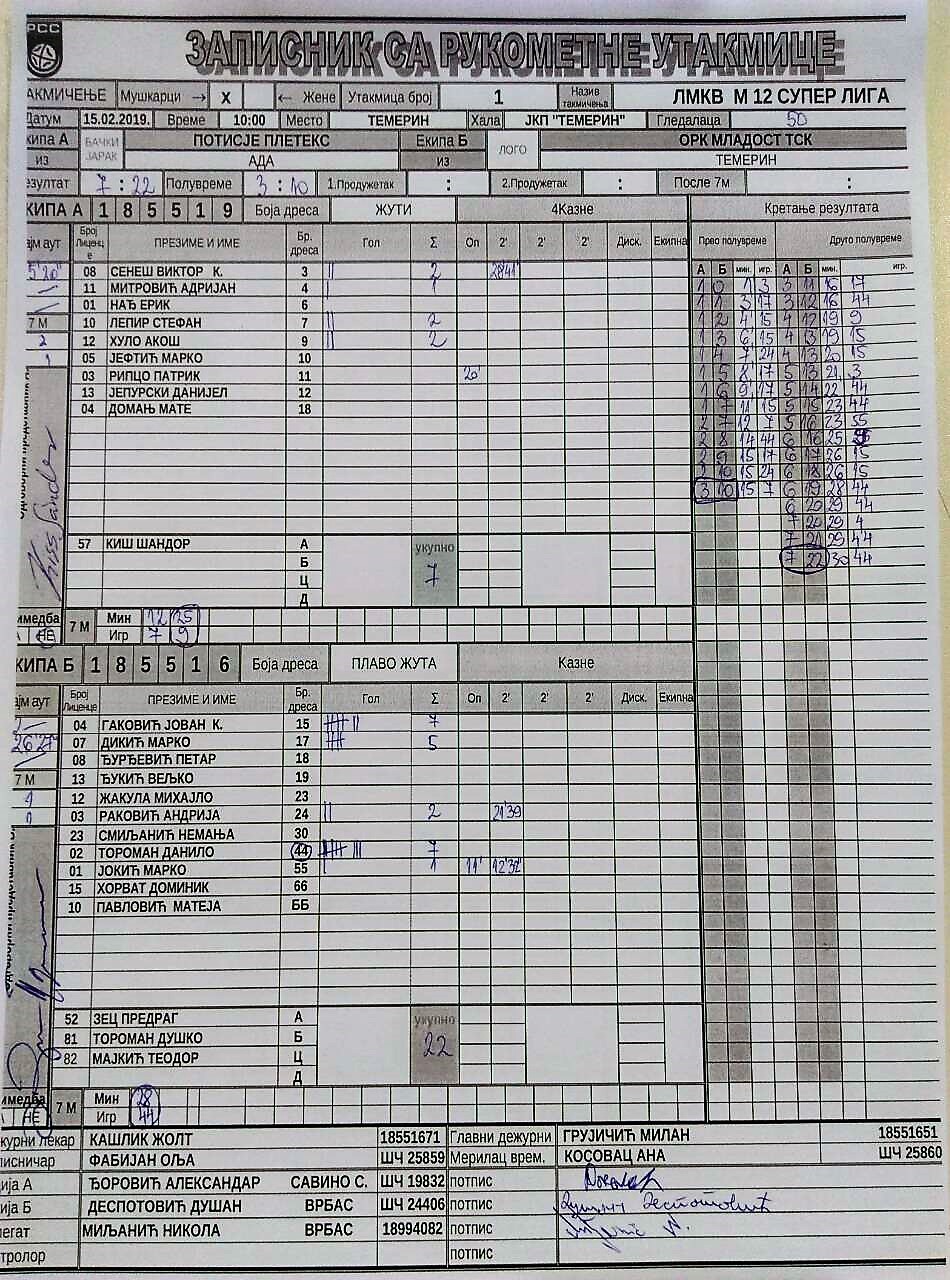 РСС
ЗАПИСНИК СА РУКОМЕТНЕ УТАКМИЦЕ
АКМИЧЕЊЕ Мушкарци → X ← Жене Утакмица број 1 Назив такмичења ЛМКВ М 12 СУПЕР ЛИГА
Датум 15.02.2019. Време 10:00 Место ТЕМЕРИН Хала ЈКП "ТЕМЕРИН" Гледалаца 50
кипа А БАЧКИ ЈАРАК ПОТИСЈЕ ПЛЕТЕКС Екипа Б ЛОГО ОРК МЛАДОСТ ТСК
из АДА из ТЕМЕРИН
езултат 7 : 22 Полувреме 3 : 10 1.Продужетак : 2.Продужетак : После 7м :
КИПА А 1 8 5 5 1 9 Боја дреса ЖУТИ 4Казне Кретање резултата
ајм аут Број Лиценце ПРЕЗИМЕ И ИМЕ Бр. дреса Гол Σ Оп 2' 2' 2' Диск. Екипна Прво полувреме Друго полувреме
А Б мин. игр. А Б мин. игр.
5'20" 08 СЕНЕШ ВИКТОР К. 3 || 2 28'41" 1 0 1 3 3 11 16 17
11 МИТРОВИЋ АДРИЈАН 4 | 1 1 1 3 17 3 12 16 44
01 НАЂ ЕРИК 6 1 2 4 15 4 12 19 9
7 М 10 ЛЕПИР СТЕФАН 7 || 2 1 3 6 15 4 13 19 15
2 12 ХУЛО АКОШ 9 || 2 1 4 7 24 4 13 20 15
1 05 ЈЕФТИЋ МАРКО 10 1 5 8 17 5 13 21 3
03 РИПЦО ПАТРИК 11 20' 1 6 9 17 5 14 22 44
13 ЈЕПУРСКИ ДАНИЈЕЛ 12 1 7 11 15 5 15 23 44
04 ДОМАЊ МАТЕ 18 2 7 12 7 5 16 23 55
2 8 14 44 6 16 25 9
2 9 15 17 6 17 26 15
2 10 15 24 6 18 26 15
3 10 15 7 6 19 28 44
6 20 29 44
7 20 29 4
7 21 29 44
7 22 30 44
57 КИШ ШАНДОР А укупно
Б 7
Ц
Д
Kiss Sándor
имедба НЕ 7 М Мин 12 25
Игр 7 9
КИПА Б 1 8 5 5 1 6 Боја дреса ПЛАВО ЖУТА Казне
ајм аут Број Лиценце ПРЕЗИМЕ И ИМЕ Бр. дреса Гол Σ Оп 2' 2' 2' Диск. Екипна
04 ГАКОВИЋ ЈОВАН К. 15 7
26'27" 07 ДИКИЋ МАРКО 17 5
08 ЂУРЂЕВИЋ ПЕТАР 18
7 М 13 ЂУКИЋ ВЕЉКО 19
1 12 ЖАКУЛА МИХАЈЛО 23
1 03 РАКОВИЋ АНДРИЈА 24 || 2 21'39
23 СМИЉАНИЋ НЕМАЊА 30
02 ТОРОМАН ДАНИЛО 44 7
01 ЈОКИЋ МАРКО 55 | 1 11' 12'32"
15 ХОРВАТ ДОМИНИК 66
10 ПАВЛОВИЋ МАТЕЈА ББ
52 ЗЕЦ ПРЕДРАГ А укупно
81 ТОРОМАН ДУШКО Б 22
82 МАЈКИЋ ТЕОДОР Ц
Д
имедба НЕ 7 М Мин 28
Игр 44
журни лекар КАШЛИК ЖОЛТ 18551671 Главни дежурни ГРУЈИЧИЋ МИЛАН 18551651
писничар ФАБИЈАН ОЉА ШЧ 25859 Мерилац врем. КОСОВАЦ АНА ШЧ 25860
ија А ЂОРОВИЋ АЛЕКСАНДАР САВИНО С. ШЧ 19832 потпис
ија Б ДЕСПОТОВИЋ ДУШАН ВРБАС ШЧ 24406 потпис Душан Деспотовић
егат МИЉАНИЋ НИКОЛА ВРБАС 18994082 потпис
тролор потпис